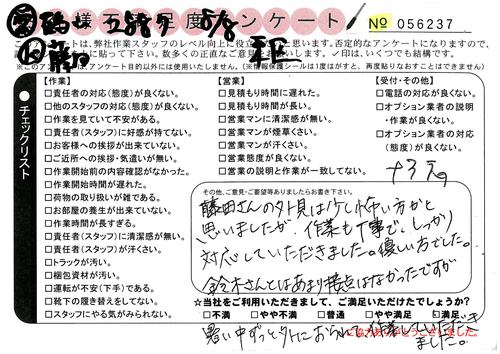 様 満足度アンケート
No 056237
このアンケートは、弊社作業スタッフのレベル向上に役立
思います。否定的なアンケートになりますので、
に貼って下さい。数多くの正直なご意見をお待ちしています。✓印は、いくつでも結構です。
※このアンケートは、アンケート目的以外には使用いたしません。(※情報保護シールは1度はがすと、再度貼りなおすことはできません)
チェックリスト
【作業】
□責任者の対応(態度)が良くない。
□他のスタッフの対応(態度)が良くない。
□作業を見ていて不安がある。
□責任者(スタッフ)に好感が持てない。
□お客様への挨拶が出来ていない。
□ご近所への挨拶・気遣いが無い。
□作業開始前の内容確認がなかった。
□作業開始時間が遅れた。
□荷物の取り扱いが雑である。
□お部屋の養生が出来ていない。
□作業時間が長すぎる。
□責任者(スタッフ)に清潔感が無い。
□責任者(スタッフ)が汗くさい。
□トラックが汚い。
□梱包資材が汚い。
□運転が不安(下手)である。
□靴下の履き替えをしてない。
□スタッフにやる気がみられない。
【営業】
□見積もり時間に遅れた。
□見積もり時間が長い。
□営業マンに清潔感が無い。
□営業マンが煙草くさい。
□営業マンが汗くさい。
□営業態度が良くない。
□営業の説明と作業が一致してない。
【受付・その他】
□電話の対応が良くない。
□オプション業者の説明
・作業が良くない。
□オプション業者の対応
(態度)が良くない。
その他、ご意見・ご要望等ありましたらお書き下さい。
藤田さんの外見は少し怖い方かと
思いましたが、作業も丁寧で、しっかり
対応していただきました。優しい方でした。
鈴木さんとはあまり接点はなかったですが
☆当社をご利用いただきまして、ご満足いただけたでしょうか?
□不満 □やや不満 □普通 □やや満足 □満足
暑い中ずっと外におられて作業していただき
ました。
ご協力ありがとうございました。